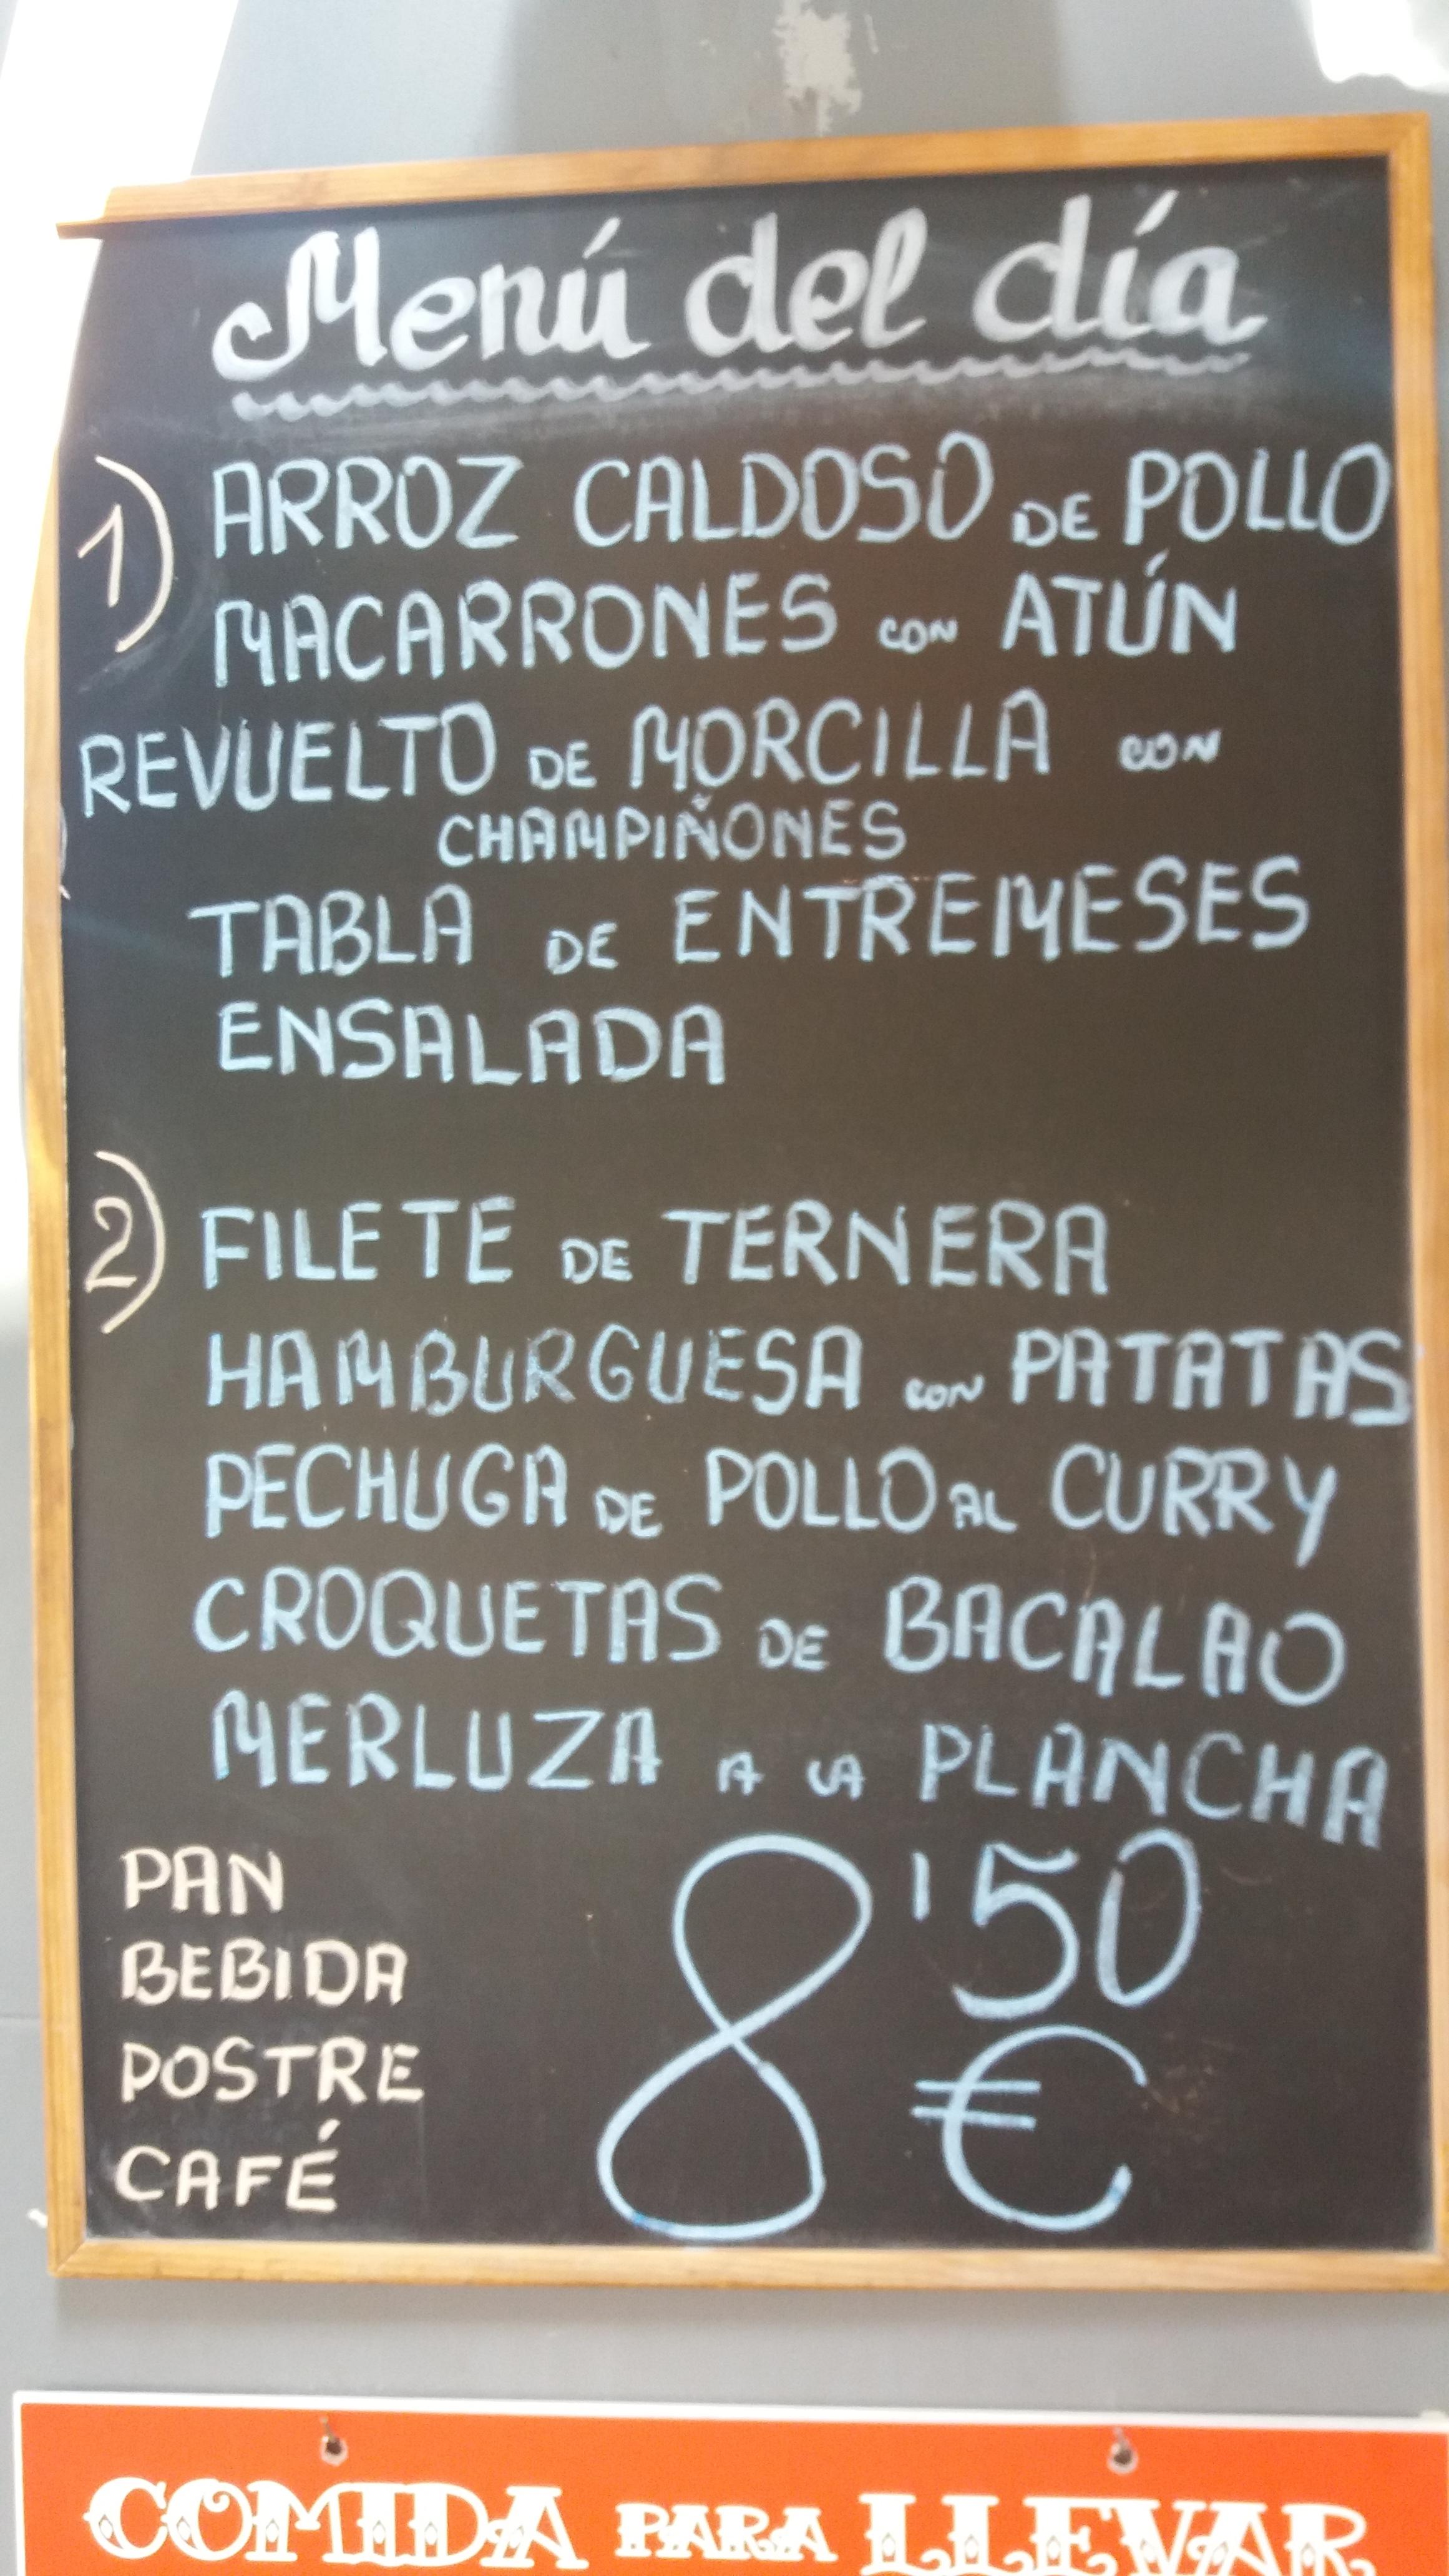 Menú del día
1) ARROZ CALDOSO DE POLLO
MACARRONES CON ATÚN
REVUELTO DE MORCILLA CON
CHAMPIÑONES
TABLA DE ENTREMESES
ENSALADA
2) FILETE DE TERNERA
HAMBURGUESA CON PATATAS
PECHUGA DE POLLO AL CURRY
CROQUETAS DE BACALAO
MERLUZA A LA PLANCHA
PAN
BEBIDA
POSTRE
CAFÉ
8'50
€
COMIDA PARA LLEVAR